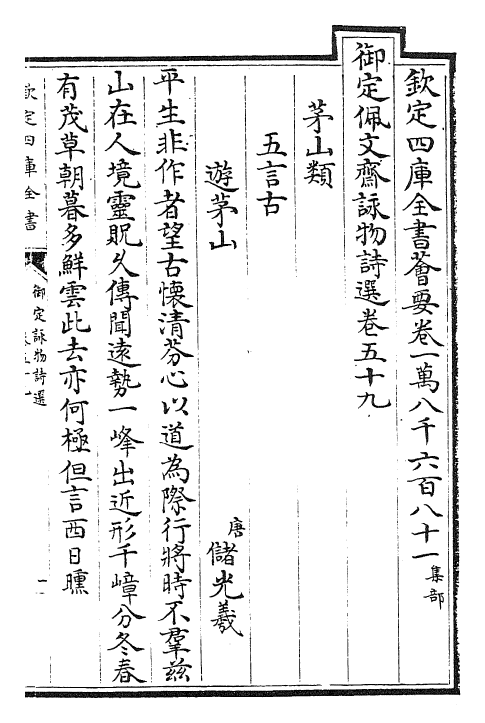 欽定四庫全書薈要卷一萬八千六百八十一集部
御定佩文齋詠物詩選卷五十九
茅山類
五言古
遊茅山
唐儲光羲
平生非作者望古懷清芬心以道為際行將時不羣茲
山在人境靈貺久傳聞遠勢一峰出近形千嶂分冬春
有茂草朝暮多鮮雲此去亦何極但言西日曛
欽定四庫全書
御定詠物詩選
一